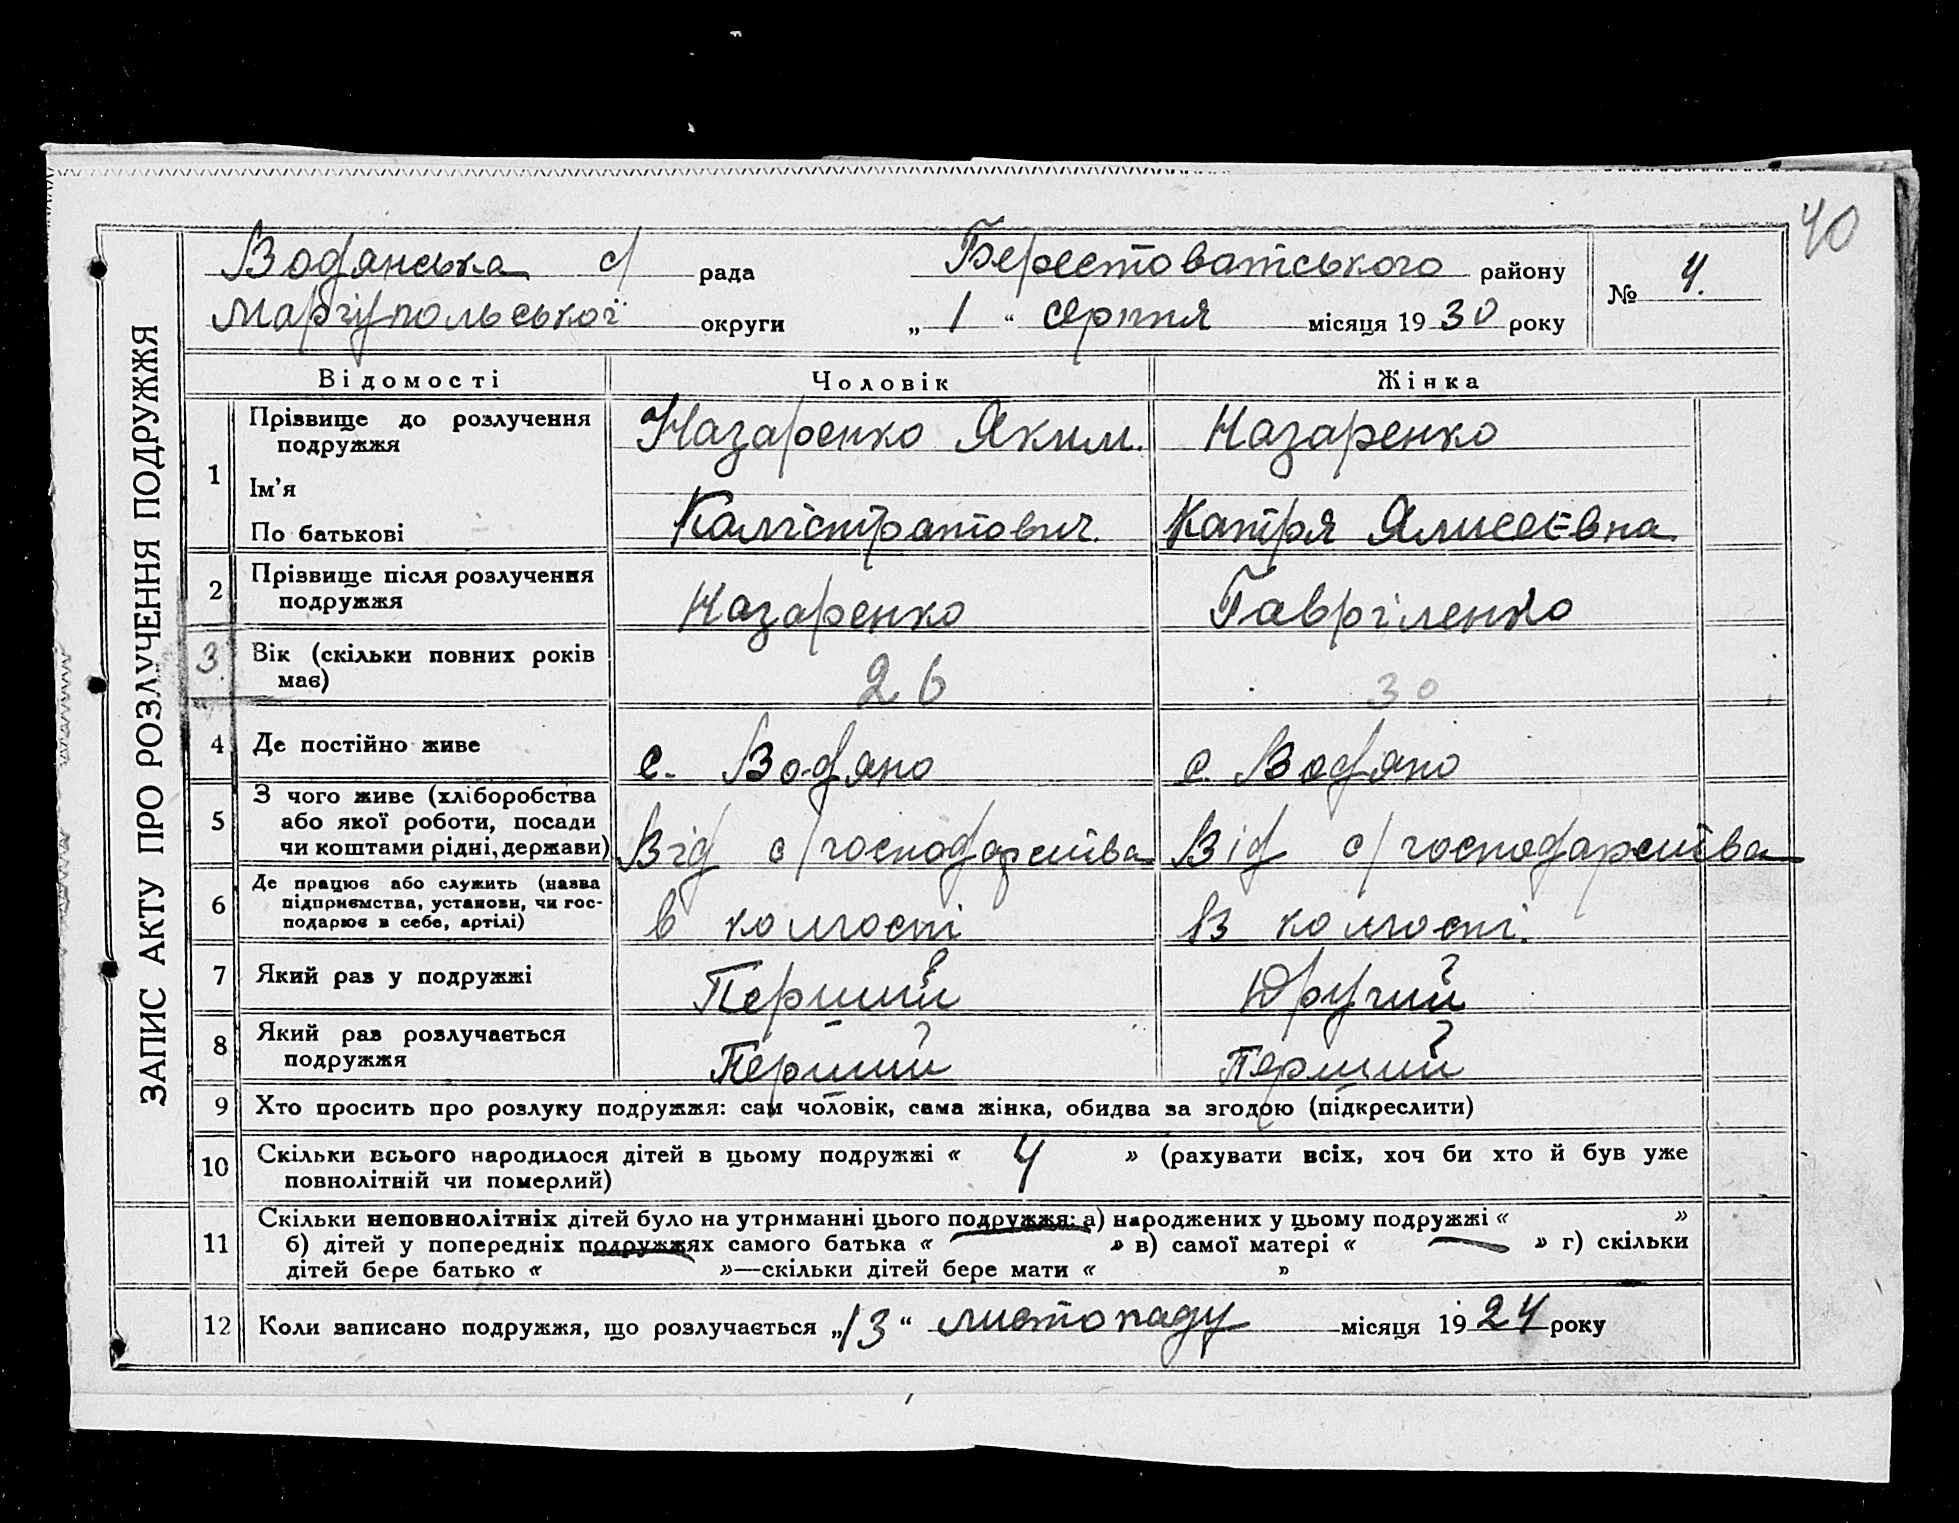 40
Водянська с/ рада Берестоватського району № 4.
Маріупольської округи „ 1 “ серпня місяця 19 30 року
ЗАПИС АКТУ ПРО РОЗЛУЧЕННЯ ПОДРУЖЖЯ
Відомості Чоловік Жінка
1 Прізвище до розлучення Назаренко Яким. Назаренко
подружжя
Ім'я
По батькові Калістратович. Катря Ялисеєвна
2 Прізвище після розлучення
подружжя Назаренко Гавріленко
3. Вік (скільки повних років
має) 26 30
4 Де постійно живе с. Водяно с. Водяно
З чого живе (хліборобства
5 або якої роботи, посади
чи коштами рідні, держави) Від с/господарства Від с/господарства
Де працює або служить (назва
6 підприємства, установи, чи гос-
подарює в себе, артілі) в колгоспі В колгоспі.
7 Який раз у подружжі Перший Другий
8 Який раз розлучається
подружжя Перший Перший
9 Хто просить про розлуку подружжя: сам чоловік, сама жінка, обидва за згодою (підкреслити)
10 Скільки всього народилося дітей в цьому подружжі « 4 » (рахувати всіх, хоч би хто й був уже
повнолітній чи померлий)
Скільки неповнолітніх дітей було на утриманні цього подружжя: а) народжених у цьому подружжі « »
11 б) дітей у попередніх подружжях самого батька « » в) самої матері « » г) скільки
дітей бере батько « »—скільки дітей бере мати « »
12 Коли записано подружжя, що розлучається „13“ листопаду місяця 19 24 року